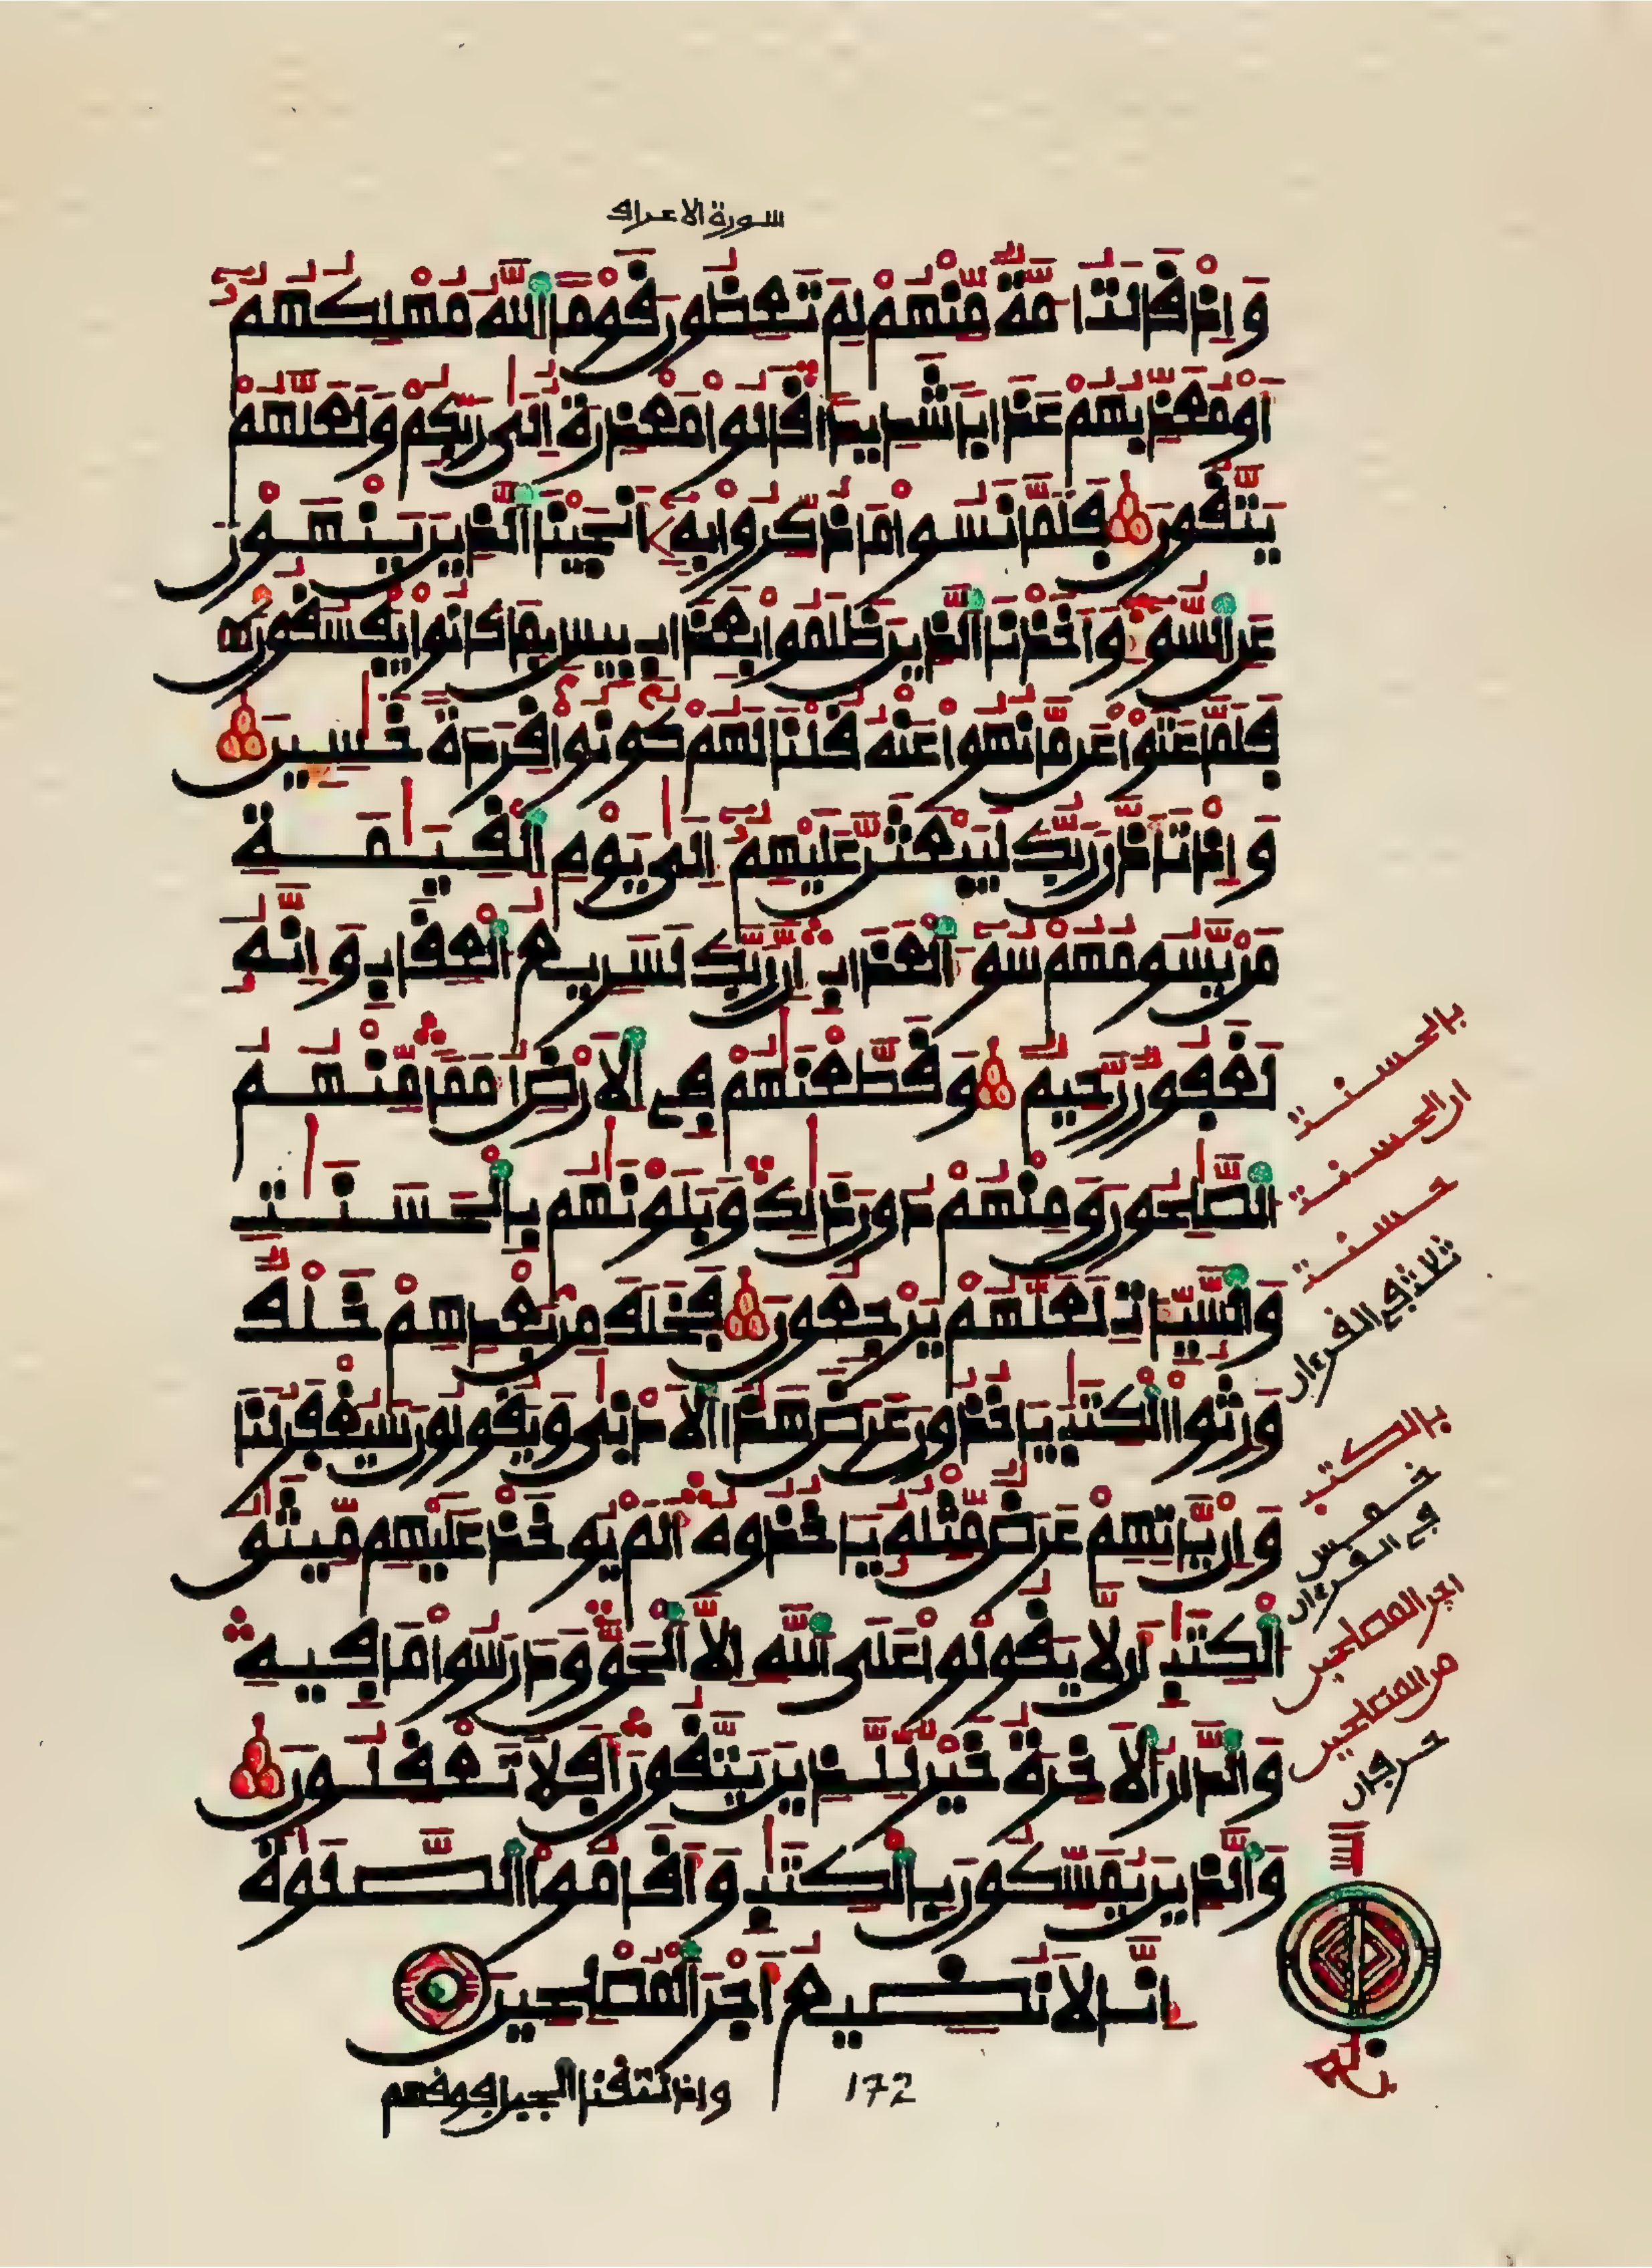 سورة الاعراف
وَإِذْ قَالَتُ امَّةٌ مِّنْهُمْ لِمَ تَعِظُونَ قَوْماً اللَّهُ مُهْلِكُهُمُ
أَوْ مُعَذِّبُهُمْ عَذَاباً شَدِيداً قَالُوا مَعْذِرَةٌ إِلَى رَبِّكُمْ وَلَعَلَّهُمْ
يَتَّقُونَ فَلَمَّا نَسُوا مَا ذُكِّرُوا بِهِ أَنجَيْنَا الَّذِينَ يَنْهَوْنَ
عَنِ السُّوءِ وَأَخَذْنَا الَّذِينَ ظَلَمُوا بِعَذَابٍ بِيسٍ بِمَا كَانُوا يَفْسُقُونَ
فَلَمَّا عَتَوْا عَن مَّا نُهُوا عَنْهُ قُلْنَا لَهُمْ كُونُوا قِرَدَةً خَسِينَ
وَإِذْ تَأَذَّنَ رَبُّكَ لَيَبْعَثَنَّ عَلَيْهِمُ إِلَى يَوْمِ الْقِيَمَةِ
مَنْ يَّسُومُهُمْ سُوءَ الْعَذَابِ إِنَّ رَبَّكَ لَسَرِيعُ الْعِقَابِ وَإِنَّهُ
لَغَفُورٌ رَّحِيمٌ وَقَطَّعْنَهُمْ فِي الْأَرْضِ أُمَماً مِّنْهُمُ
الصَّلِحُونَ وَمِنْهُمْ دُونَ ذَلِكَ وَبَلَوْنَهُم بِالْحَسَنَتِ
وَالسَّيِّئَاتِ لَعَلَّهُمْ يَرْجِعُونَ فَخَلَفَ مِنْ بَعْدِهِمْ خَلْفٌ
وَرِثُوا الْكِتَبَ يَأْخُذُونَ عَرَضَ هَذَا الْأَدْنَى وَيَقُولُونَ سَيُغْفَرُ لَنَا
وَإِنْ يَّأْتِهِمْ عَرَضٌ مِّثْلُهُ يَأْخُذُوهُ أَلَمْ يُوخَذْ عَلَيْهِم مِّيثَقُ
الْكِتَبِ أَن لَّا يَقُولُوا عَلَى اللَّهِ إِلَّا الْحَقَّ وَدَرَسُوا مَا فِيهِ
وَالدَّارُ الْأَخِرَةُ خَيْرٌ لِّلَّذِينَ يَتَّقُونَ أَفَلَا تَعْقِلُونَ
وَالَّذِينَ يُمَسِّكُونَ بِالْكِتَبِ وَأَقَامُوا الصَّلَوةَ
إِنَّا لَا نُضِيعُ أَجْرَ الْمُصْلِحِينَ
واذ نتقنا الجبل فوقهم
172
بالحسنت
ان الحسنت
حسنت
ثلاث في القرءان
بالكتب
خمس
في القرءان
اجر المصلحين
من المصلحين
حرفان